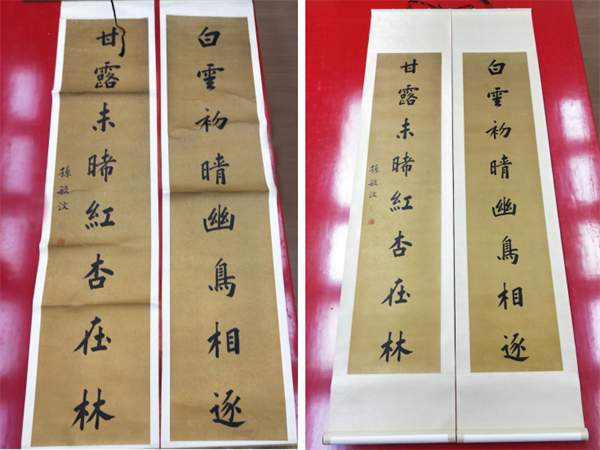 白雲初晴幽鳥相逐
甘露未晞紅杏在林
孫毓汶
白雲初晴幽鳥相逐
甘露未晞紅杏在林
孫毓汶